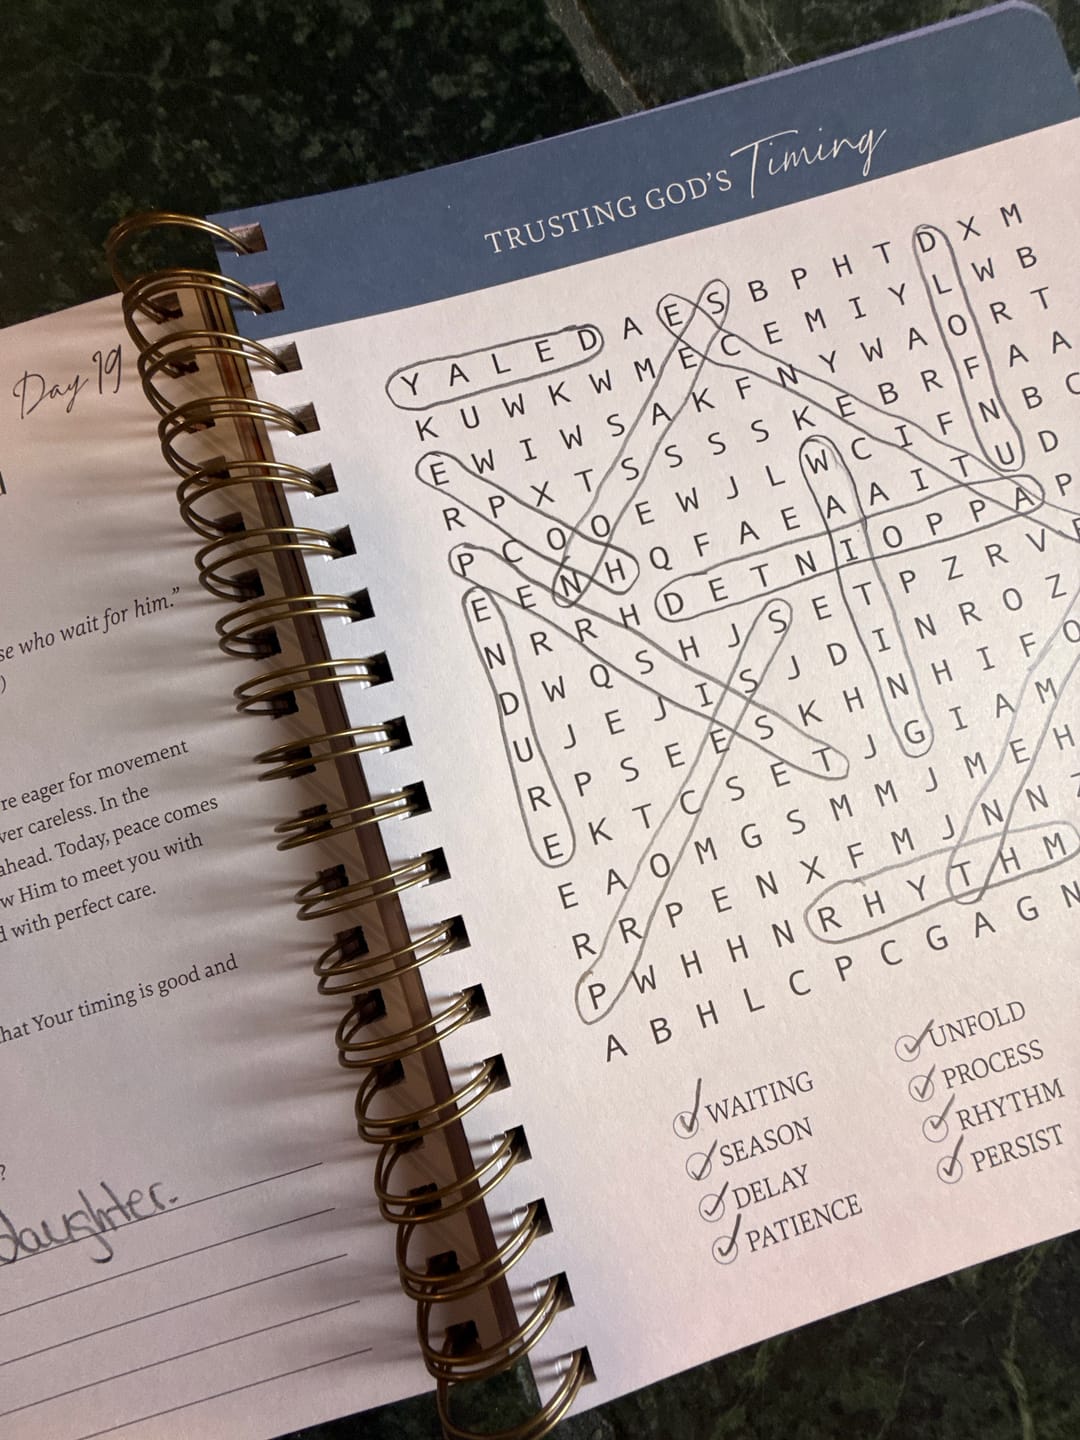 Day 19
se who wait for him.”
)
re eager for movement
ver careless. In the
ahead. Today, peace comes
w Him to meet you with
d with perfect care.
hat Your timing is good and
?
daughter.
TRUSTING GOD'S Timing
Y A L E D A E S B P H T D X M
K U W K W M E C E M I Y L W B
E W I W S A K F N Y W A O R T
R P X T S S S S K E B R F A A
P C O O E W J L W C I F N B C
E E N H Q F A E A A I T U D
N R R H D E T N I O P P A P
D W Q S H J S E T P Z R V
U J E J I S J D I N R O Z
R P S E E S K H N H I F O
E K T C S E T J G I A M
E A O M G S M M J M E H
R R P E N X F M J N N
P W H H N R H Y T H M
A B H L C P C G A G N
WAITING
SEASON
DELAY
PATIENCE
UNFOLD
PROCESS
RHYTHM
PERSIST